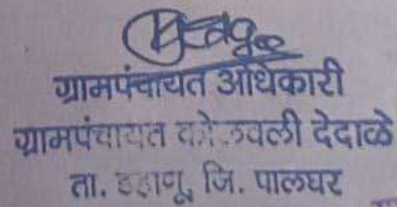 ग्रामपंचायत अधिकारी
ग्रामपंचायत कोळवली देदाळे
ता. डहाणू, जि. पालघर